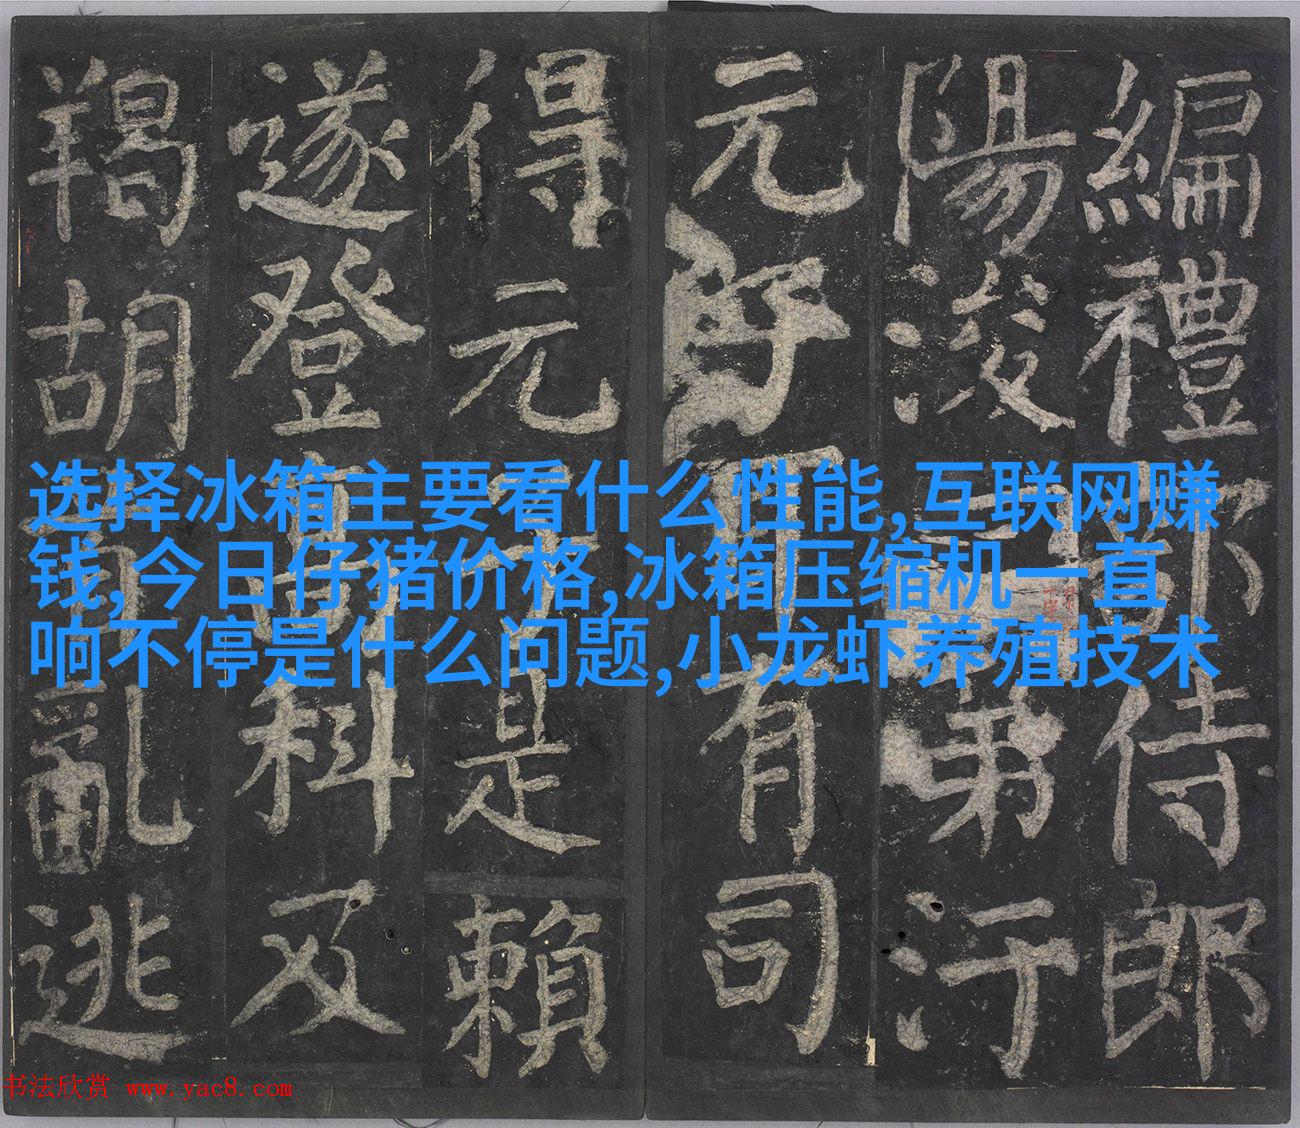 选择冰箱主要看什么性能,互联网赚
钱,今日仔猪价格,冰箱压缩机一直
响不停是什么问题,小龙虾养殖技术
編禮侍郎
陽浚弟汙
元有司
得元是賴
遂登高科及
羯胡亂逃
书法欣赏 www.yac8.com